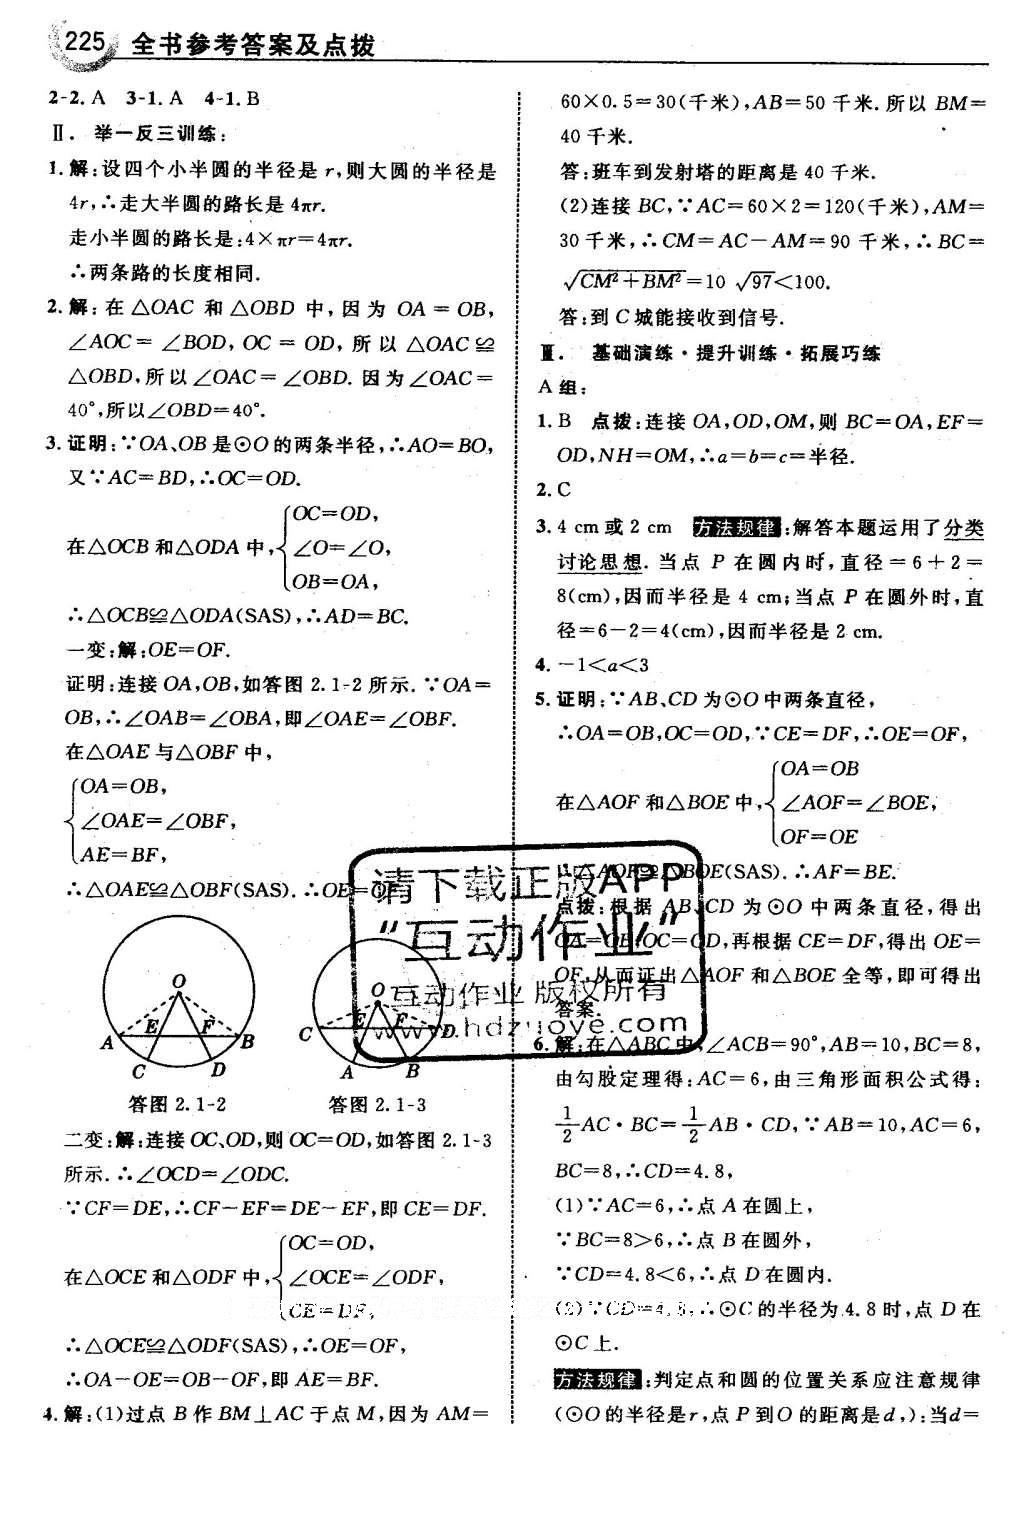 225 全书参考答案及点拨
2-2. A 3-1. A 4-1. B
Ⅱ. 举一反三训练:
1. 解:设四个小半圆的半径是 r,则大圆的半径是
4r,∴走大半圆的路长是 4πr.
走小半圆的路长是:4×πr=4πr.
∴两条路的长度相同.
2. 解:在 △OAC 和 △OBD 中,因为 OA = OB,
∠AOC = ∠BOD, OC = OD, 所以 △OAC≌
△OBD,所以∠OAC=∠OBD. 因为∠OAC=
40°,所以∠OBD=40°.
3. 证明:∵OA、OB 是⊙O的两条半径,∴AO=BO,
又∵AC=BD,∴OC=OD.
OC=OD,
在△OCB 和△ODA 中, ∠O=∠O,
OB=OA,
∴△OCB≌△ODA(SAS),∴AD=BC.
一变:解:OE=OF.
证明:连接 OA,OB,如答图 2.1-2 所示. ∵OA=
OB,∴∠OAB=∠OBA,即∠OAE=∠OBF.
在△OAE 与△OBF 中,
OA=OB,
∠OAE=∠OBF,
AE=BF,
∴△OAE≌△OBF(SAS). ∴OE=OF.
O
E F
A B
C D
答图 2.1-2
O
E F
C D
A B
答图 2.1-3
二变:解:连接 OC、OD,则 OC=OD,如答图 2.1-3
所示. ∴∠OCD=∠ODC.
∵CF=DE,∴CF-EF=DE-EF,即 CE=DF.
OC=OD,
在△OCE 和△ODF 中, ∠OCE=∠ODF,
CE=DF,
∴△OCE≌△ODF(SAS),∴OE=OF,
∴OA-OE=OB-OF,即 AE=BF.
4. 解:(1)过点 B 作 BM⊥AC 于点 M,因为 AM=
60×0.5=30(千米),AB=50 千米. 所以 BM=
40 千米.
答:班车到发射塔的距离是 40 千米.
(2)连接 BC,∵AC=60×2=120(千米),AM=
30 千米,∴CM=AC-AM=90 千米,∴BC=
√CM²+BM²=10 √97<100.
答:到 C 城能接收到信号.
Ⅲ. 基础演练·提升训练·拓展巧练
A 组:
1. B 点拨:连接 OA,OD,OM,则 BC=OA,EF=
OD,NH=OM,∴a=b=c=半径.
2. C
3. 4 cm 或 2 cm 方法规律:解答本题运用了分类
讨论思想. 当点 P 在圆内时,直径=6+2=
8(cm),因而半径是 4 cm;当点 P 在圆外时,直
径=6-2=4(cm),因而半径是 2 cm.
4. -1<a<3
5. 证明:∵AB、CD 为⊙O 中两条直径,
∴OA=OB,OC=OD,∵CE=DF,∴OE=OF,
OA=OB
在△AOF 和△BOE 中, ∠AOF=∠BOE,
OF=OE
∴△AOF≌△BOE(SAS). ∴AF=BE.
点拨:根据 AB、CD 为⊙O 中两条直径,得出
OA=OB,OC=OD,再根据 CE=DF,得出 OE=
OF,从而证出△AOF 和△BOE 全等,即可得出
答案.
6. 解:在△ABC 中,∠ACB=90°,AB=10,BC=8,
由勾股定理得:AC=6,由三角形面积公式得:
1/2 AC·BC=1/2 AB·CD,∵AB=10,AC=6,
BC=8,∴CD=4.8,
(1)∵AC=6,∴点 A 在圆上,
∵BC=8>6,∴点 B 在圆外,
∵CD=4.8<6,∴点 D 在圆内.
(2)∵CD=4.8,∴⊙C 的半径为 4.8 时,点 D 在
⊙C 上.
方法规律:判定点和圆的位置关系应注意规律
(⊙O 的半径是 r,点 P 到 O 的距离是 d,):当d=
请下载正版APP
“互动作业”
互动作业 版权所有
www.hdzuoye.com